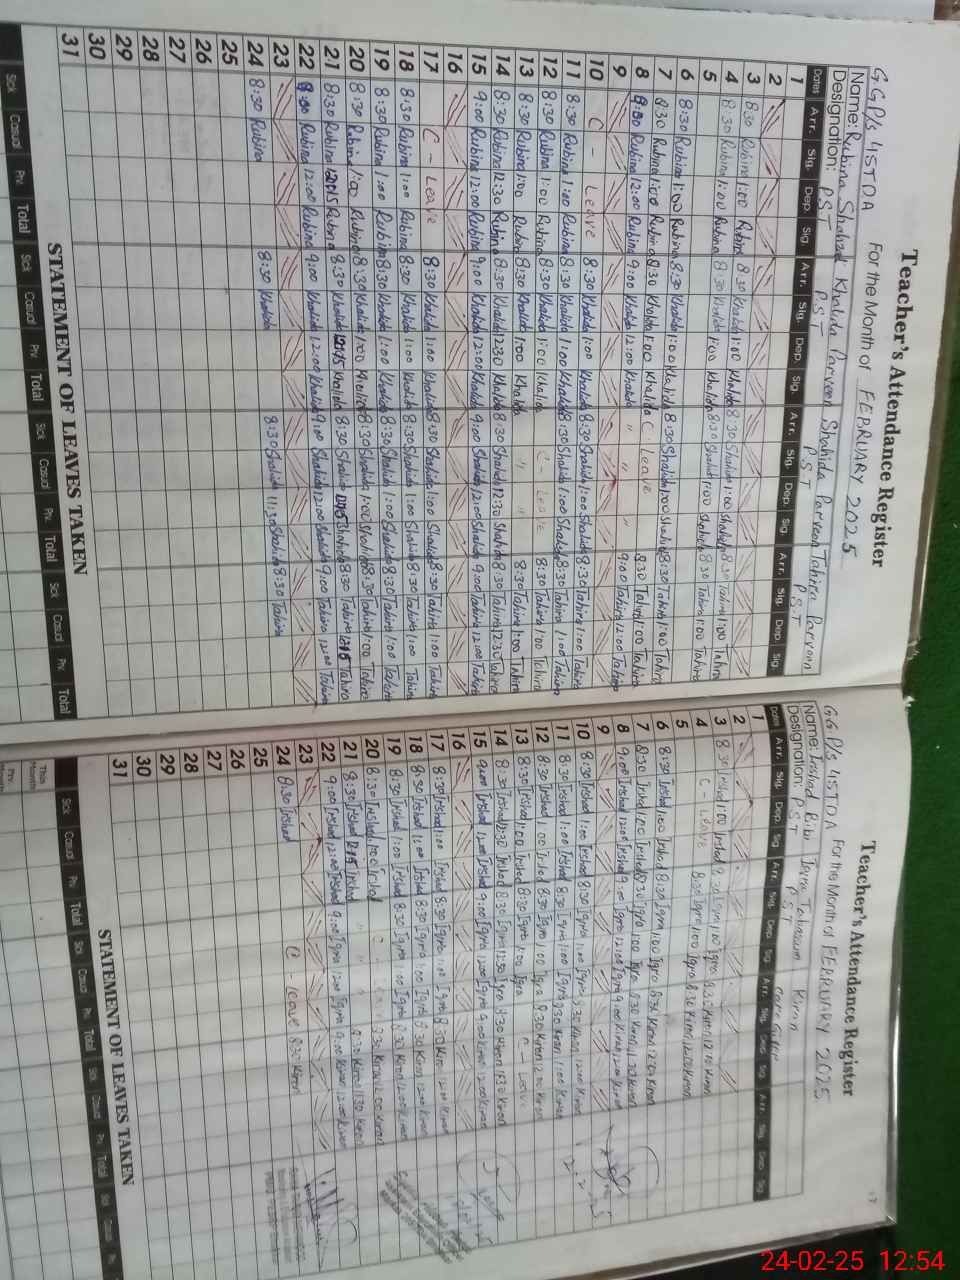 Teacher's Attendance Register
GGP/s 4STDA For the Month of FEBRUARY 2025
Name: Rubina Shahzad Khalida Parveen Shahida Parveen Tahira Parveen
Designation: PST P.ST P.ST P.S.T
Dates Arr. Sig. Dep. Sig. Arr. Sig. Dep. Sig. Arr. Sig. Dep. Sig. Arr. Sig. Dep. Sig.
1
2
3 8:30 Rubina 1:00 Rubina 8:30 Khalida 1:00 Khalida 8:30 Shahida 1:00 Shahida 8:30 Tahira 1:00 Tahira
4 8:30 Rubina 1:00 Rubina 8:30 Khalida 1:00 Khalida 8:30 Shahida 1:00 Shahida 8:30 Tahira 1:00 Tahira
5
6 8:30 Rubina 1:00 Rubina 8:30 Khalida 1:00 Khalida 8:30 Shahida 1:00 Shahida 8:30 Tahira 1:00 Tahira
7 8:30 Rubina 1:00 Rubina 8:30 Khalida 1:00 Khalida C. Leave 8:30 Tahira 1:00 Tahira
8 Rubina 12:00 Rubina 9:00 Khalida 12:00 Khalida " " " 9:00 Tahira 12:00 Tahira
9
10 C - Leave 8:30 Khalida 1:00 Khalida 8:30 Shahida 1:00 Shahida 8:30 Tahira 1:00 Tahira
11 8:30 Rubina 1:00 Rubina 8:30 Khalida 1:00 Khalida 8:30 Shahida 1:00 Shahida 8:30 Tahira 1:00 Tahira
12 8:30 Rubina 1:00 Rubina 8:30 Khalida 1:00 Khalida C - Leave 8:30 Tahira 1:00 Tahira
13 8:30 Rubina 1:00 Rubina 8:30 Khalida 1:00 Khalida " " 8:30 Tahira 1:00 Tahira
14 8:30 Rubina 12:30 Rubina 8:30 Khalida 12:30 Khalida 8:30 Shahida 12:30 Shahida 8:30 Tahira 12:30 Tahira
15 9:00 Rubina 12:00 Rubina 9:00 Khalida 12:00 Khalida 9:00 Shahida 12:00 Shahida 9:00 Tahira 12:00 Tahira
16
17 C - Leave 8:30 Khalida 1:00 Khalida 8:30 Shahida 1:00 Shahida 8:30 Tahira 1:00 Tahira
18 8:30 Rubina 1:00 Rubina 8:30 Khalida 1:00 Khalida 8:30 Shahida 1:00 Shahida 8:30 Tahira 1:00 Tahira
19 8:30 Rubina 1:00 Rubina 8:30 Khalida 1:00 Khalida 8:30 Shahida 1:00 Shahida 8:30 Tahira 1:00 Tahira
20 8:30 Rubina 1:00 Rubina 8:30 Khalida 1:00 Khalida 8:30 Shahida 1:00 Shahida 8:30 Tahira 1:00 Tahira
21 8:30 Rubina Rubina 8:30 Khalida 12:15 Khalida 8:30 Shahida Shahida 8:30 Tahira 12:15 Tahira
22 Rubina 12:00 Rubina 9:00 Khalida 12:00 Khalida 9:00 Shahida 12:00 Shahida 9:00 Tahira 12:00 Tahira
23
24 8:30 Rubina 8:30 Khalida 8:30 Shahida 11:30 Shahida 8:30 Tahira
25
26
27
28
29
30
31
STATEMENT OF LEAVES TAKEN
Sick Casual Prv. Total Sick Casual Prv. Total Sick Casual Prv. Total Sick Casual Prv. Total
Teacher's Attendance Register
GGP/s 4STDA For the Month of FEBRUARY 2025
Name: Irshad Bibi Iqra Tabassum Kiran
Designation: PST P.ST Care Giver
Dates Arr. Sig. Dep. Sig. Arr. Sig. Dep. Sig. Arr. Sig. Dep. Sig. Arr. Sig. Dep. Sig.
1
2
3 8:30 Irshad 1:00 Irshad 8:30 Iqra 1:00 Iqra 8:30 Kiran 12:00 Kiran
4 C - Leave 8:30 Iqra 1:00 Iqra 8:30 Kiran 12:00 Kiran
5
6 8:30 Irshad 1:00 Irshad 8:30 Iqra 1:00 Iqra 8:30 Kiran 12:00 Kiran
7 8:30 Irshad 1:00 Irshad 8:30 Iqra 1:00 Iqra 8:30 Kiran 11:30 Kiran
8 9:00 Irshad 12:00 Irshad 9:00 Iqra 12:00 Iqra 9:00 Kiran 12:00 Kiran
9
10 8:30 Irshad 1:00 Irshad 8:30 Iqra 1:00 Iqra 8:30 Kiran 12:00 Kiran
11 8:30 Irshad 1:00 Irshad 8:30 Iqra 1:00 Iqra 8:30 Kiran 1:00 Kiran
12 8:30 Irshad 1:00 Irshad 8:30 Iqra 1:00 Iqra 8:30 Kiran 12:00 Kiran
13 8:30 Irshad 1:00 Irshad 8:30 Iqra 1:00 Iqra C - Leave
14 8:30 Irshad 12:30 Irshad 8:30 Iqra 12:30 Iqra 8:30 Kiran 11:30 Kiran
15 9:00 Irshad 12:00 Irshad 9:00 Iqra 12:00 Iqra 9:00 Kiran 12:00 Kiran
16
17 8:30 Irshad 1:00 Irshad 8:30 Iqra 1:00 Iqra 8:30 Kiran 12:00 Kiran
18 8:30 Irshad 1:00 Irshad 8:30 Iqra 1:00 Iqra 8:30 Kiran 12:00 Kiran
19 8:30 Irshad 1:00 Irshad 8:30 Iqra 1:00 Iqra 8:30 Kiran 12:00 Kiran
20 8:30 Irshad 1:00 Irshad 8:30 Kiran 12:00 Kiran
21 8:30 Irshad Irshad 8:30 Kiran 11:30 Kiran
22 9:00 Irshad 12:00 Irshad 9:00 Iqra 12:00 Iqra 9:00 Kiran 12:00 Kiran
23
24 8:30 Irshad C - leave 8:30 Kiran
25
26
27
28
29
30
31
STATEMENT OF LEAVES TAKEN
Sick Casual Prv Total Sick Casual Prv Total Sick Casual Prv Total Sick Casual Prv.
This Month
Prv. Months
24-02-25 12:54